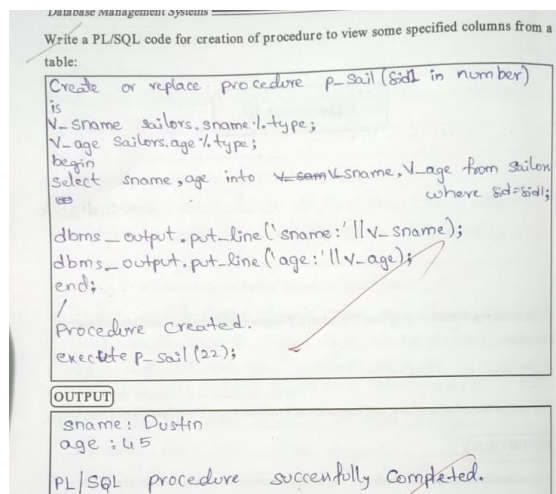 Database Management Systems
Write a PL/SQL code for creation of procedure to view some specified columns from a
table:
Create or replace procedure p_sail (sid1 in number)
is
V_sname sailors.sname%type;
V_age Sailors.age%type;
begin
select sname, age into V_sname, V_age from sailors
where sid=sid1;
dbms_output.put_line('sname:'||v_sname);
dbms_output.put_line('age:'||v_age);
end;
/
Procedure Created.
execute p_sail(22);
OUTPUT
sname: Dustin
age: 45
PL/SQL procedure succenfully Completed.